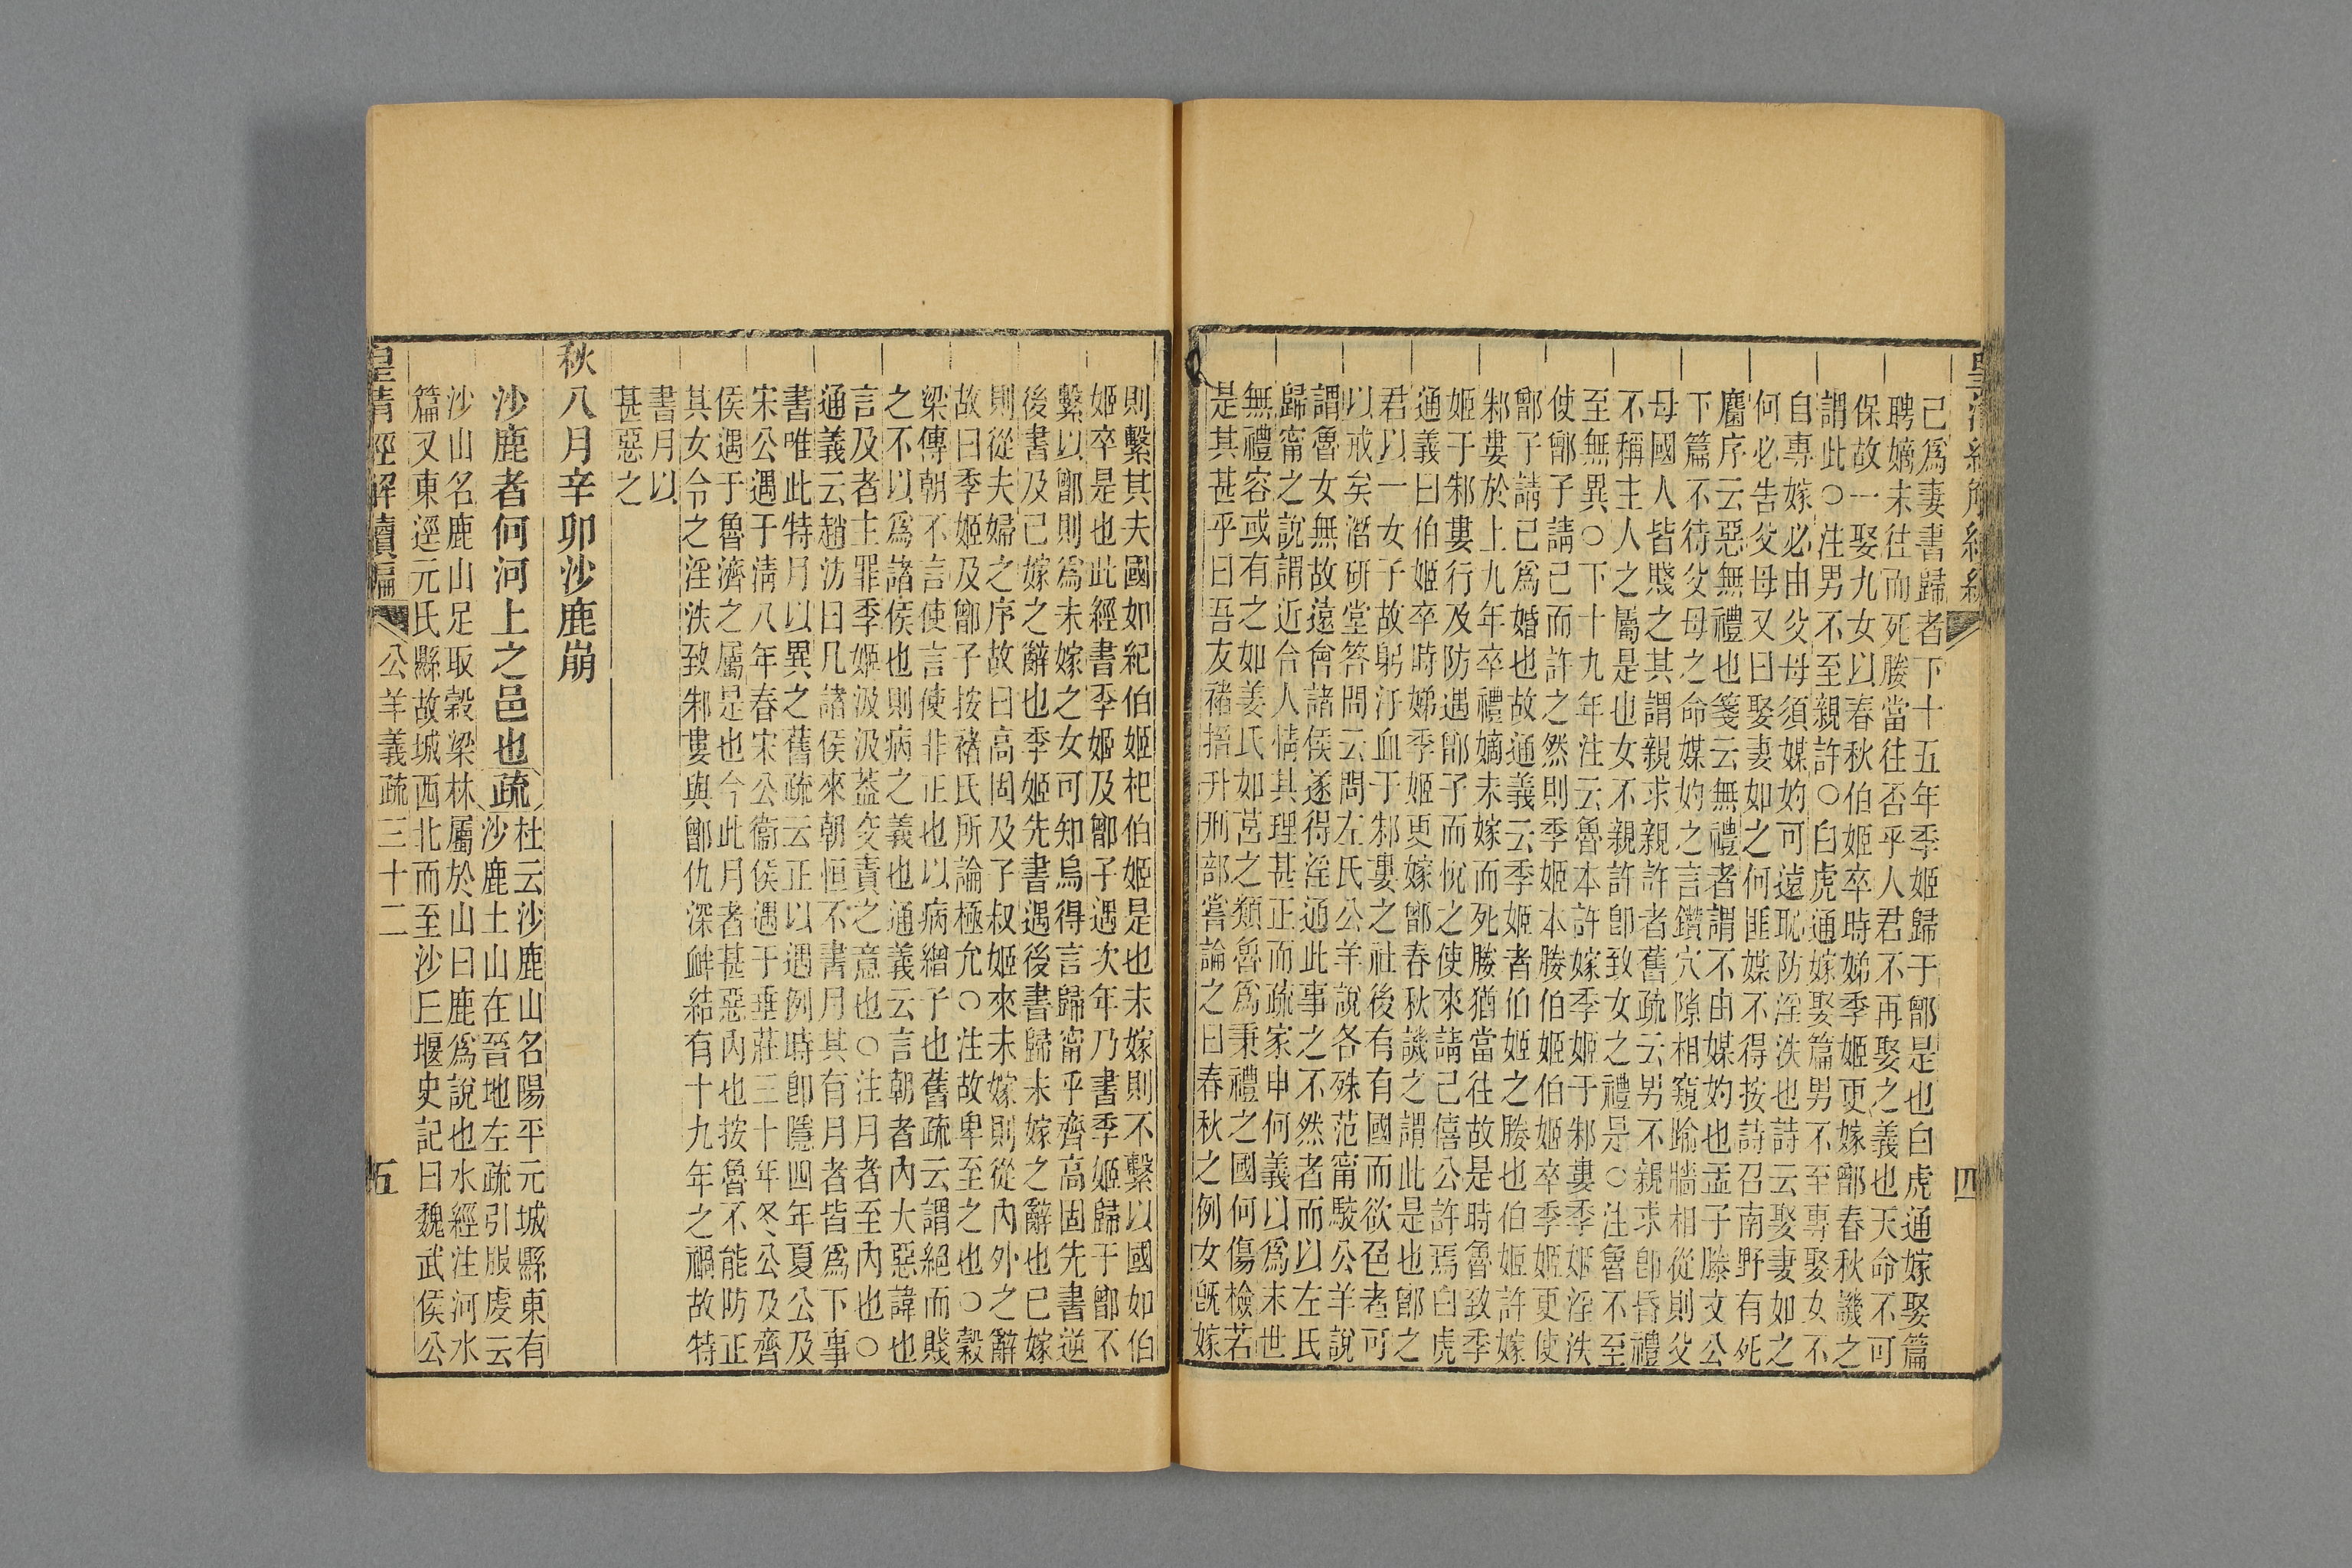 己爲妻書歸者下十五年季姬歸于鄫是也白虎通嫁娶篇
聘嫡未往而死媵當往否乎人君不再娶之義也天命不可
保故一娶九女以春秋伯姬卒時娣季姬更嫁鄫春秋譏之
謂此○注男不至親許○白虎通嫁娶篇男不至專娶女不
自專嫁必由父母須媒妁可遠恥防淫泆也詩云娶妻如之
何必告父母又曰娶妻如之何匪媒不得按詩召南野有死
麕序云惡無禮也箋云無禮者謂不由媒妁也孟子滕文公
下篇不待父母之命媒妁之言鑽穴隙相窺踰牆相從則父
母國人皆賤之其謂親求親許者舊疏云男不親求卽昏禮
不稱主人之屬是也女不親許卽致女之禮是○注魯不至
至無異○下十九年注云魯本許嫁季姬于邾婁季姬淫泆
使鄫子請已而許之然則季姬本媵伯姬伯姬卒季姬更使
鄫子請已爲婚也故通義云季姬者伯姬之媵也伯姬許嫁
邾婁於上九年卒禮嫡未嫁而死媵猶當往故是時魯致季
姬于邾婁行及防遇鄫子而悅之使來請己僖公許焉白虎
通義曰伯姬卒時娣季姬更嫁鄫春秋譏之謂此是也鄫之
君以一女子故躬汙血于邾婁之社後有有國而欲色者可
以戒矣潛研堂答問云問左氏公羊說各殊范甯駁公羊說
謂魯女無故遠會諸侯遂得淫通此事之不然者而以左氏
歸甯之說謂近合人情其理甚正而疏家申何義以爲末世
無禮容或有之如姜氏如莒之類魯爲秉禮之國何傷檢若
是其甚乎曰吾友褚搢升刑部嘗論之曰春秋之例女旣嫁
四
則繫其夫國如紀伯姬杞伯姬是也未嫁則不繫以國如伯
姬卒是也此經書季姬及鄫子遇次年乃書季姬歸于鄫不
繫以鄫則爲未嫁之女可知烏得言歸甯乎齊高固先書逆
後書及已嫁之辭也季姬先書遇後書歸未嫁之辭也已嫁
則從夫婦之序故曰高固及子叔姬來未嫁則從內外之辭
故曰季姬及鄫子按褚氏所論極允○注故卑至之也○穀
梁傳朝不言使言使非正也以病繒子也舊疏云謂絕而賤
之不以爲諸侯也則病之義也通義云言朝者內大惡諱也
言及者主罪季姬汲汲葢交責之意也○注月者至內也○
通義云趙汸曰凡諸侯來朝恒不書月其有月者皆爲下事
書唯此特月以異之舊疏云正以遇例時卽隱四年夏公及
宋公遇于淸八年春宋公衞侯遇于垂莊三十年冬公及齊
侯遇于魯濟之屬是也今此月者甚惡內也按魯不能防正
其女令之淫泆致邾婁與鄫仇深衅結有十九年之禍故特
書月以
甚惡之
秋八月辛卯沙鹿崩
沙鹿者何河上之邑也疏
杜云沙鹿山名陽平元城縣東有
沙鹿土山在晉地左疏引服虔云
沙山名鹿山足取穀梁林屬於山曰鹿爲說也水經注河水
篇又東逕元氏縣故城西北而至沙丘堰史記曰魏武侯公
皇清經解續編
公羊義疏三十二
五